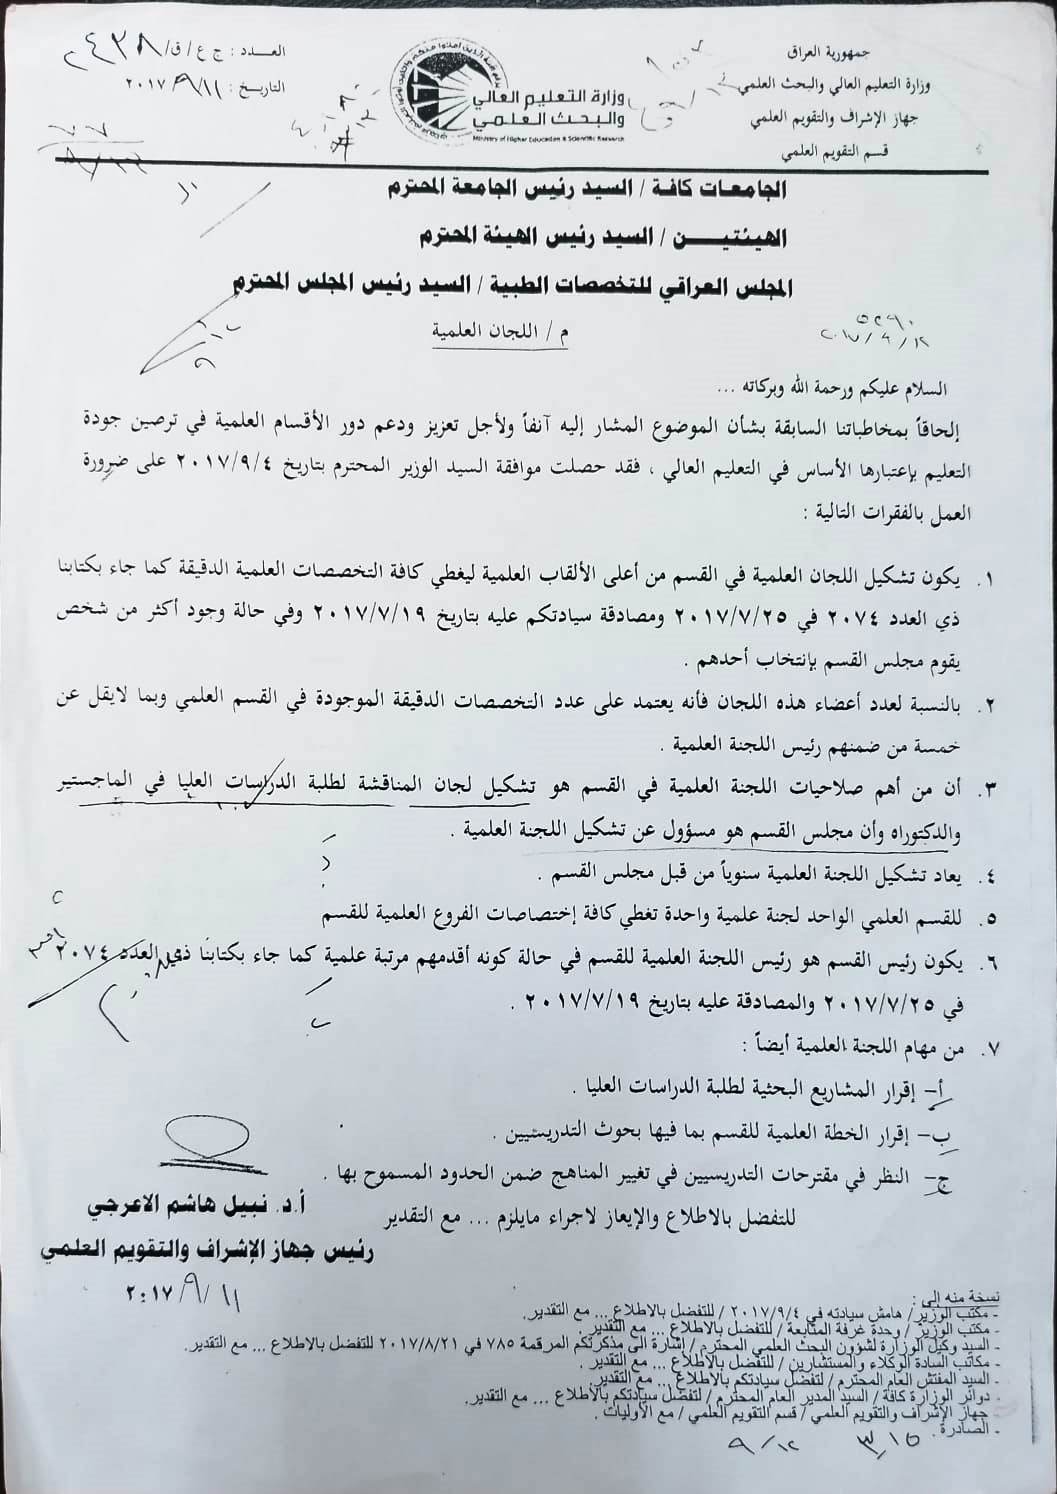 جمهورية العراق
وزارة التعليم العالي والبحث العلمي
جهاز الإشراف والتقويم العلمي
قسم التقويم العلمي
وزارة التعليم العالي
والبحث العلمي
Ministry of Higher Education & Scientific Research
العدد : ج ع/ ق/ ٢٤٣٨
التاريخ : ٢٠١٧/٩/١١
الجامعات كافة / السيد رئيس الجامعة المحترم
الهيئتيـــن / السيد رئيس الهيئة المحترم
المجلس العراقي للتخصصات الطبية / السيد رئيس المجلس المحترم
٥٢٩٠
٢٠١٧/٩/١٢
م / اللجان العلمية
السلام عليكم ورحمة الله وبركاته ...
إلحاقاً بمخاطباتنا السابقة بشأن الموضوع المشار إليه آنفاً ولأجل تعزيز ودعم دور الأقسام العلمية في ترصين جودة
التعليم بإعتبارها الأساس في التعليم العالي ، فقد حصلت موافقة السيد الوزير المحترم بتاريخ ٢٠١٧/٩/٤ على ضرورة
العمل بالفقرات التالية :
١. يكون تشكيل اللجان العلمية في القسم من أعلى الألقاب العلمية ليغطي كافة التخصصات العلمية الدقيقة كما جاء بكتابنا
ذي العدد ٢٠٧٤ في ٢٠١٧/٧/٢٥ ومصادقة سيادتكم عليه بتاريخ ٢٠١٧/٧/١٩ وفي حالة وجود أكثر من شخص
يقوم مجلس القسم بإنتخاب أحدهم .
٢. بالنسبة لعدد أعضاء هذه اللجان فأنه يعتمد على عدد التخصصات الدقيقة الموجودة في القسم العلمي وبما لايقل عن
خمسة من ضمنهم رئيس اللجنة العلمية .
٣. أن من أهم صلاحيات اللجنة العلمية في القسم هو تشكيل لجان المناقشة لطلبة الدراسات العليا في الماجستير
والدكتوراه وأن مجلس القسم هو مسؤول عن تشكيل اللجنة العلمية .
٤. يعاد تشكيل اللجنة العلمية سنوياً من قبل مجلس القسم .
٥. للقسم العلمي الواحد لجنة علمية واحدة تغطي كافة إختصاصات الفروع العلمية للقسم
٦. يكون رئيس القسم هو رئيس اللجنة العلمية للقسم في حالة كونه أقدمهم مرتبة علمية كما جاء بكتابنا ذي العدد ٢٠٧٤
في ٢٠١٧/٧/٢٥ والمصادقة عليه بتاريخ ٢٠١٧/٧/١٩ .
٧. من مهام اللجنة العلمية أيضاً :
أ– إقرار المشاريع البحثية لطلبة الدراسات العليا .
ب– إقرار الخطة العلمية للقسم بما فيها بحوث التدريسيين .
ج– النظر في مقترحات التدريسيين في تغيير المناهج ضمن الحدود المسموح بها .
للتفضل بالاطلاع والإيعاز لاجراء مايلزم ... مع التقدير
أ.د. نبيل هاشم الاعرجي
رئيس جهاز الإشراف والتقويم العلمي
٢٠١٧/٩/١١
نسخة منه إلى :
- مكتب الوزير/ هامش سيادته في ٢٠١٧/٩/٤ / للتفضل بالاطلاع ... مع التقدير.
- مكتب الوزير / وحدة غرفة المتابعة / للتفضل بالاطلاع ... مع التقدير .
- السيد وكيل الوزارة لشؤون البحث العلمي المحترم / إشارة الى مذكرتكم المرقمة ٧٨٥ في ٢٠١٧/٨/٢١ للتفضل بالاطلاع ... مع التقدير.
- مكاتب السادة الوكلاء والمستشارين / للتفضل بالاطلاع ... مع التقدير .
- السيد المفتش العام المحترم / لتفضل سيادتكم بالاطلاع ... مع التقدير.
- دوائر الوزارة كافة / السيد المدير العام المحترم / لتفضل سيادتكم بالاطلاع ... مع التقدير.
- جهاز الإشراف والتقويم العلمي / قسم التقويم العلمي / مع الأوليات .
- الصادرة .
٩/١٢